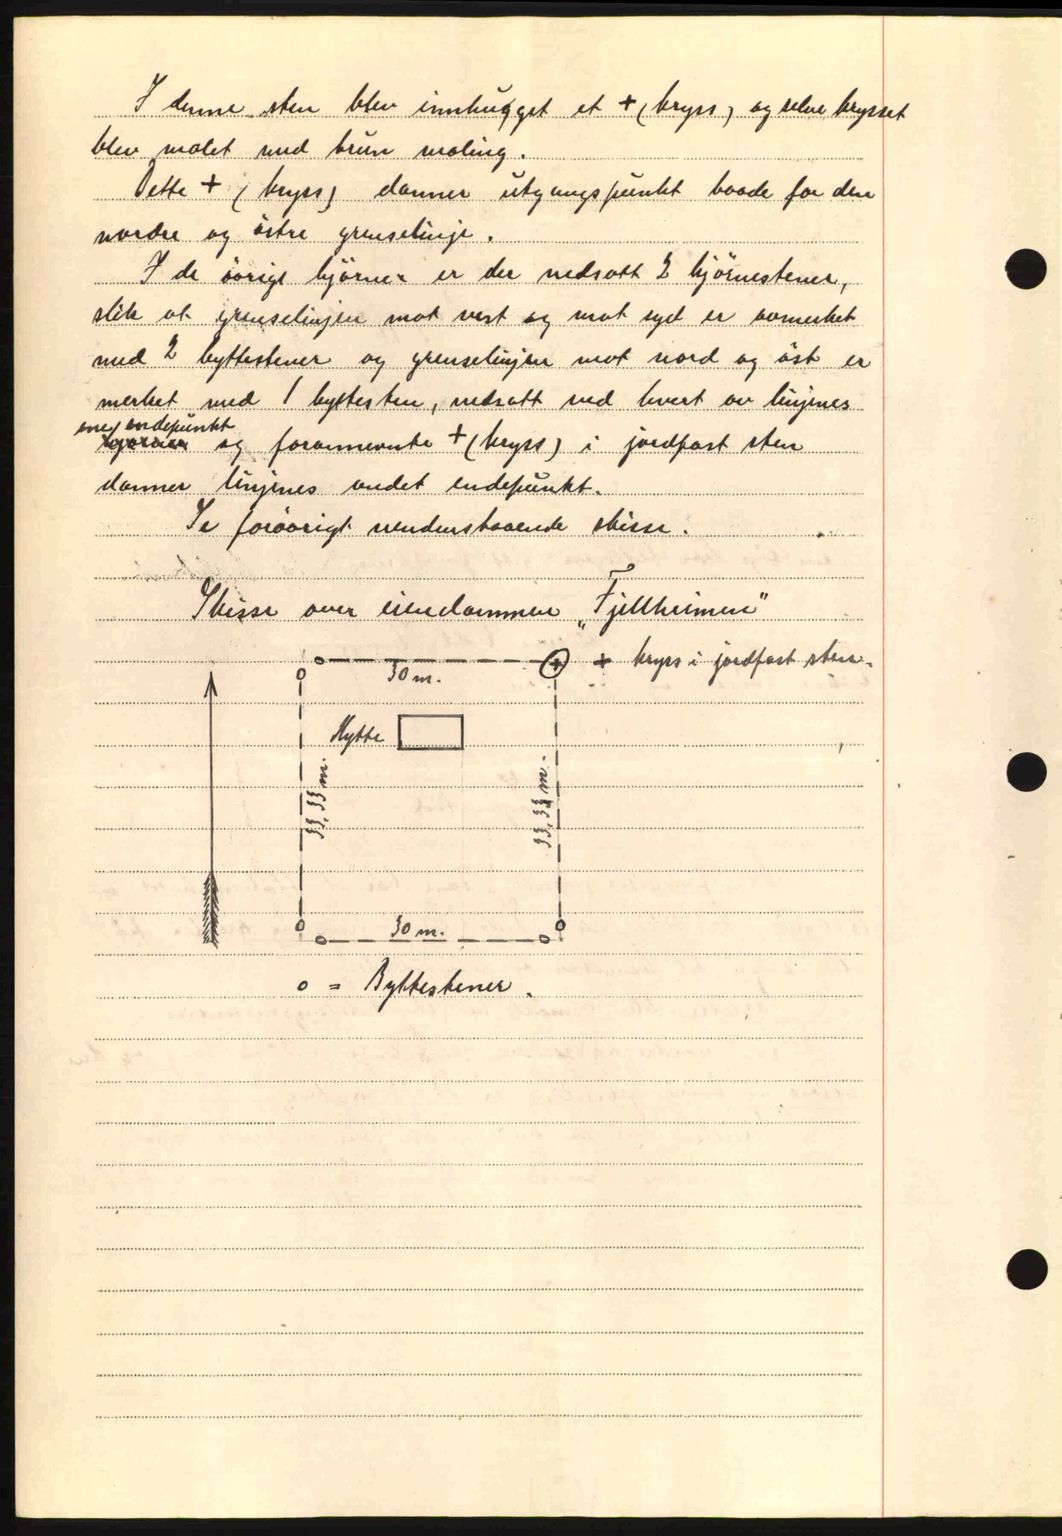 I denne sten blev innhugget et + (kryss) og selve krysset
blev malet med brun maling.
Dette + (kryss) danner utgangspunkt baade for den
nordre og östre grenselinje.
I de övrige hjörner er der nedsatt 2 hjörnestener,
slik at grenselinjen mot vest og mot syd er avmerket
med 2 byttestener og grenselinjen mot nord og öst er
merket med 1 byttesten, nedsatt ved hvert av linjenes
ene endepunkt
og forannevnte + (kryss) i jordfast sten
danner linjenes andet endepunkt.
Se forövrigt nendenstaaende skisse.
Skisse over eiendommen „Fjellheimen"
+ kryss i jordfast sten.
30 m.
Hytte
33,33 m.
33,33 m.
30 m.
o = Byttestener.